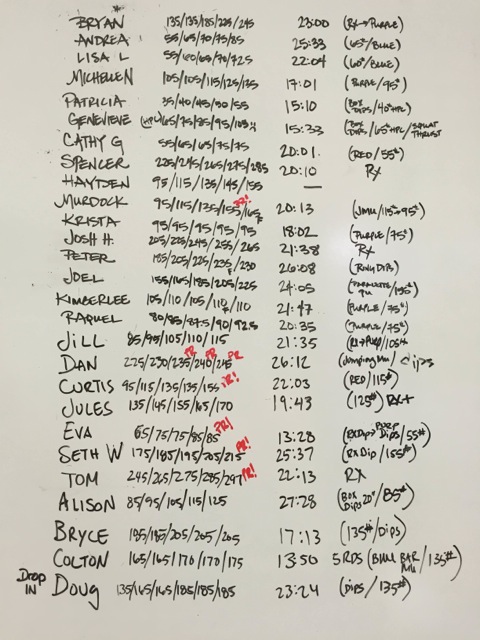 BRYAN 135/135/185/225/245 23:00 (RX→PURPLE)
ANDREA 55/65/70/75/85 25:33 (65#/BLUE)
LISA L 55/60/65/70/725 22:04 (60#/BLUE)
MICHELLEN 105/105/115/125/135 17:01 (PURPLE/95#)
PATRICIA 35/40/45/50/55 15:10 (BOX DIPS/40#HPC)
GENEVIEVE (HPC) 65/75/85/95/105 15:33 (BOX DIPS/65#HPC/SQUAT THRUST
CATHY G 55/65/65/75/75 20:01 (RED/55#)
SPENCER 225/245/265/275/285 20:10 RX
HAYDEN 95/115/135/145/155 —
MURDOCK 95/115/135/155/165 PR! 20:13 (JMU/115→95#)
KRISTA 95/95/95/95/95 18:02 (PURPLE/75#)
JOSH H. 205/225/245/255/265 21:38 RX
PETER 185/205/225/235/230 26:08 (RING DIPS)
JOEL 155/165/185/205/225 24:05
KIMBERLEE 105/110/105/110/110 21:47 (PURPLE/75#)
RAQUEL 80/85/87.5/90/92.5 20:35 (PURPLE/75#)
JILL 85/95/105/110/115 21:35
DAN 225/230/235/240/245 PR PR PR 26:12 (Jumping MU/Dips
CURTIS 95/115/135/135/155 PR! 22:03 (RED/115#)
JULES 135/145/155/165/170 19:43 (125#) RX+
EVA 65/75/75/85/85 PR! 13:28 (RXDip→ Dips/55#)
SETH W 175/185/195/205/215 PR! 25:37 (RX Dip/155#)
TOM 245/265/275/285/297 PR! 22:13 RX
ALISON 85/95/105/115/125 27:28 (BOX DIPS 20"/85#)
BRYCE 185/185/205/205/205 17:13 (135#/DIPS)
COLTON 165/165/170/170/175 13:50 5 RDS (BMU BAR MU/135#)
DROP IN Doug 135/165/165/185/185/185 23:24 (DIPS/135#)